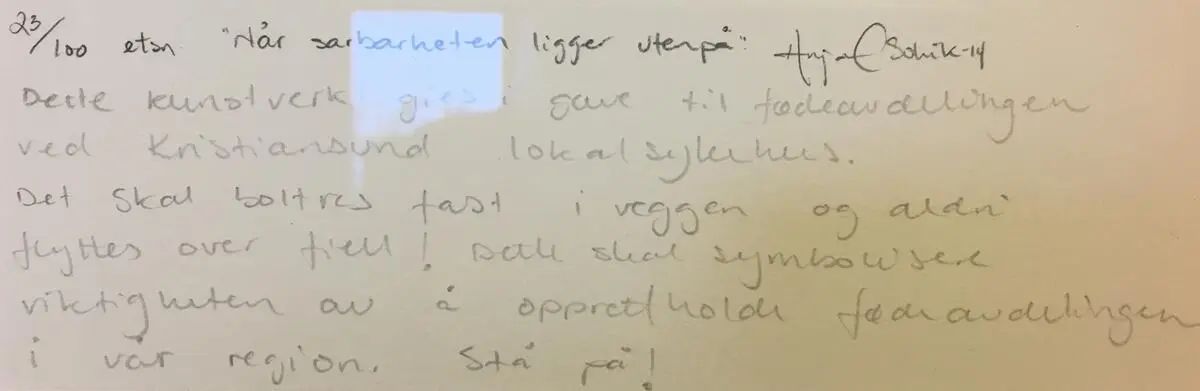 23/100 etsn "Når sarbarheten ligger utenpå" Anja C Solvik -14
Dette kunstverk gies i gave til fødeavdelingen
ved Kristiansund lokalsykehus.
Det skal boltres fast i veggen og aldri
flyttes over fjell! Dette skal symbolisere
viktigheten av å opprettholde fødeavdelingen
i vår region. Stå på!